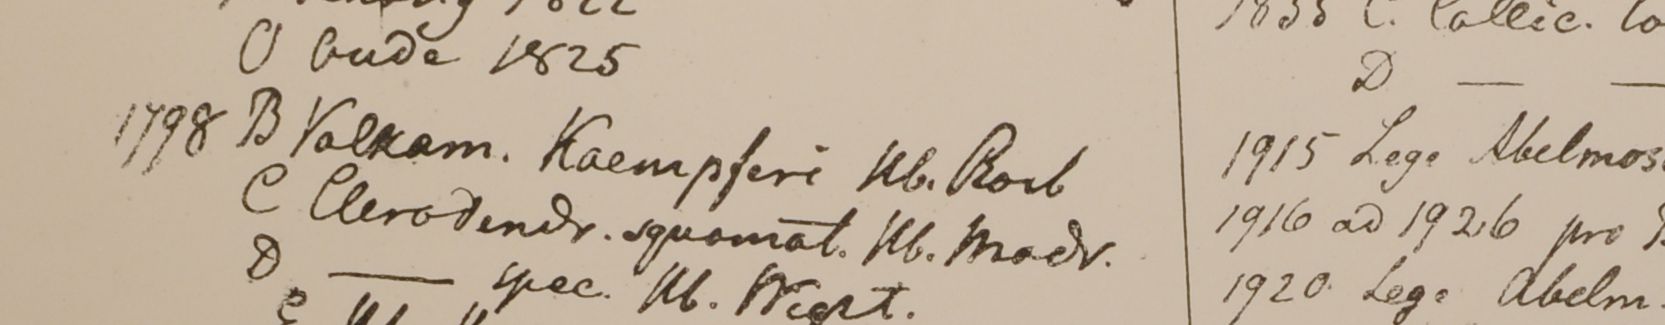 1822
O Oude 1825
1798 B Volkam. Kaempferi Hb. Roxb
C Clerodendr. squamat. Hb. Madr.
D —— spec. Hb. Wight.
E Hb.
1835 C. Callic.
D — —
1915 Lege Abelmos
1916 ad 1926 pro
1920 Lege Abelm.